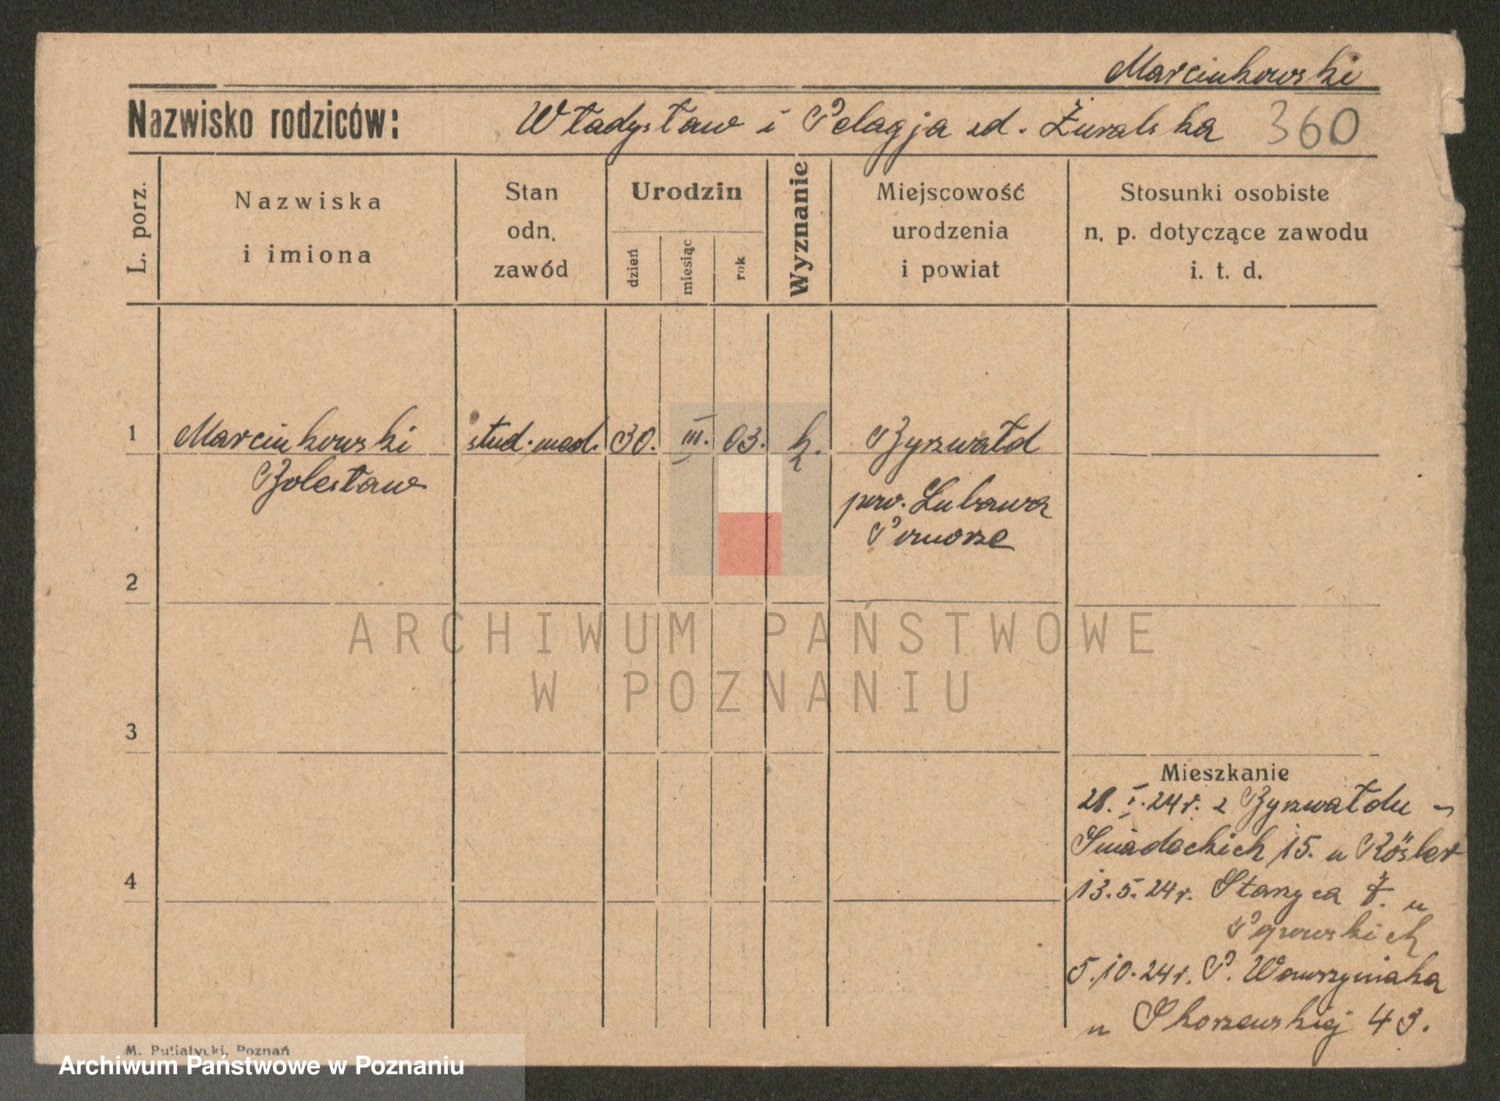 Marcinkowski
Nazwisko rodziców: Władysław i Pelagja zd. Żuralska 360
L. porz.
Nazwiska
i imiona
Stan
odn.
zawód
Urodzin
dzień
miesiąc
rok
Wyznanie
Miejscowość
urodzenia
i powiat
Stosunki osobiste
n. p. dotyczące zawodu
i. t. d.
1 Marcinkowski stud. med. 30. III. 03. k. Byszwałd
Bolesław
pow. Lubawa
Pomorze
2
ARCHIWUM PAŃSTWOWE
W POZNANIU
3
Mieszkanie
28. I. 24 r. z Byszwałdu -
Śniadeckich 15. u Rösler
4
13.5.24 r. Staszyca 7. u
5.10.24 r. P. Wawrzyniaka
u Skorzewskiej 43.
M. Putiatycki, Poznań
Archiwum Państwowe w Poznaniu